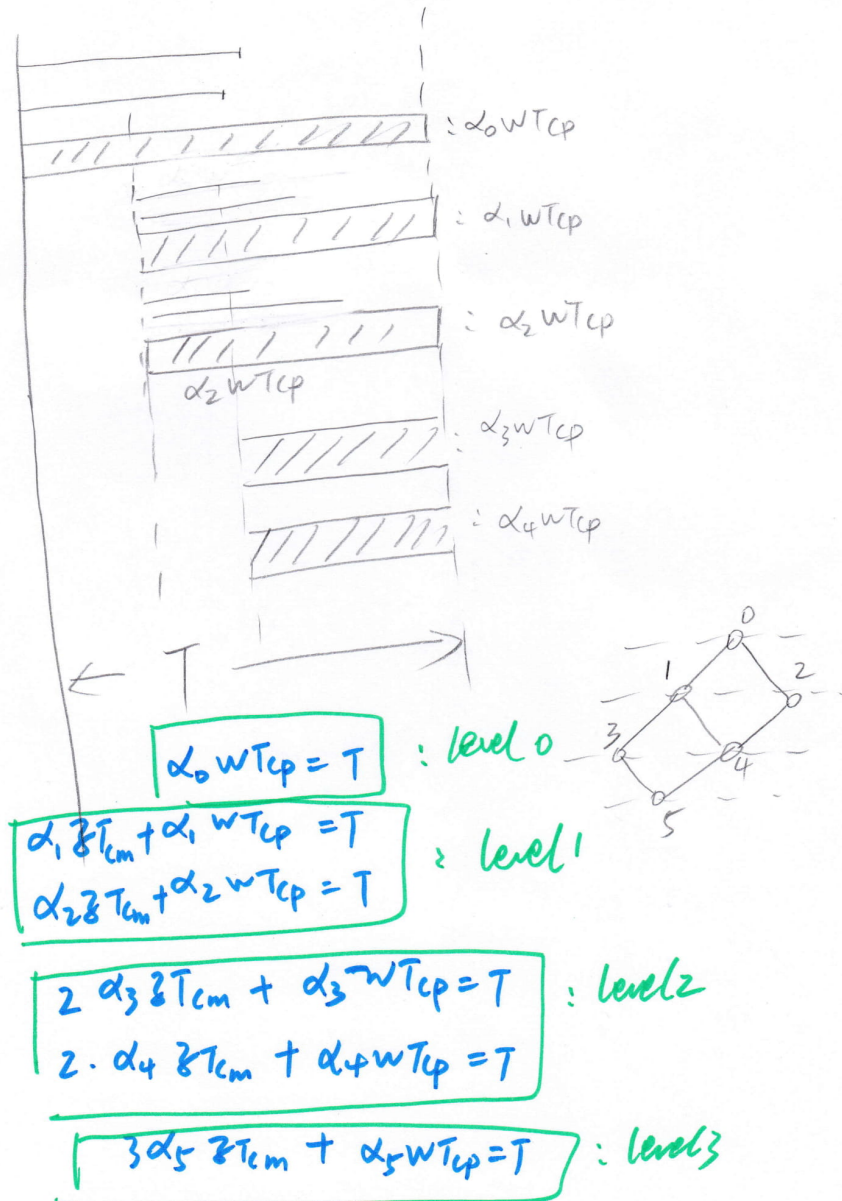 : α₀wTcp
: α₁wTcp
: α₂wTcp
α₂wTcp
: α₃wTcp
: α₄wTcp
T
0
1
2
3
4
5
α₀wTcp = T : level 0
α₁zTcm + α₁wTcp = T
α₂zTcm + α₂wTcp = T
: level 1
2 α₃zTcm + α₃wTcp = T : level 2
2. α₄zTcm + α₄wTcp = T
3α₅zTcm + α₅wTcp = T : level 3